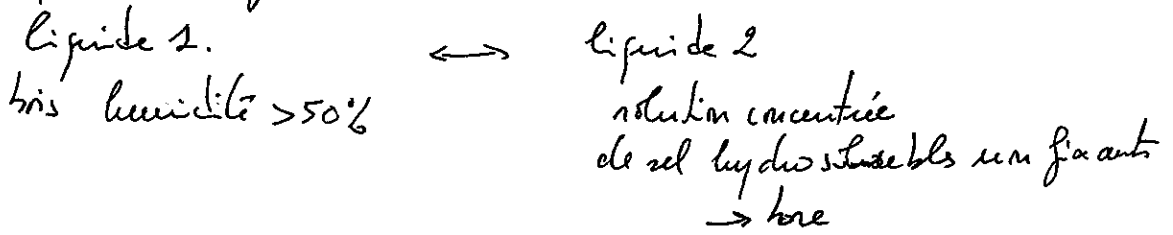 liquide 1. ↔ liquide 2
bois humidité >50% solution concentrée
de sel hydrosolubles non fixants
→ bore